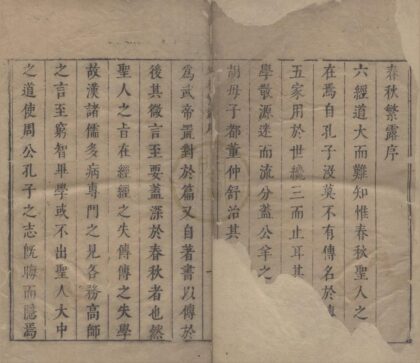 春秋繁露序
六經道大而難知惟春秋聖人之
在焉自孔子沒莫不有傳名於傳
五家用於世纔三而止耳其
學散源迷而流分蓋公羊之
胡毋子都董仲舒治其
為武帝置對於篇又自著書以傳於
後其微言至要蓋深於春秋者也然
聖人之旨在經經之失傳傳之失學
故漢諸儒多病專門之見各務高師
之言至窮智畢學或不出聖人大中
之道使周公孔子之志既晦而隱焉